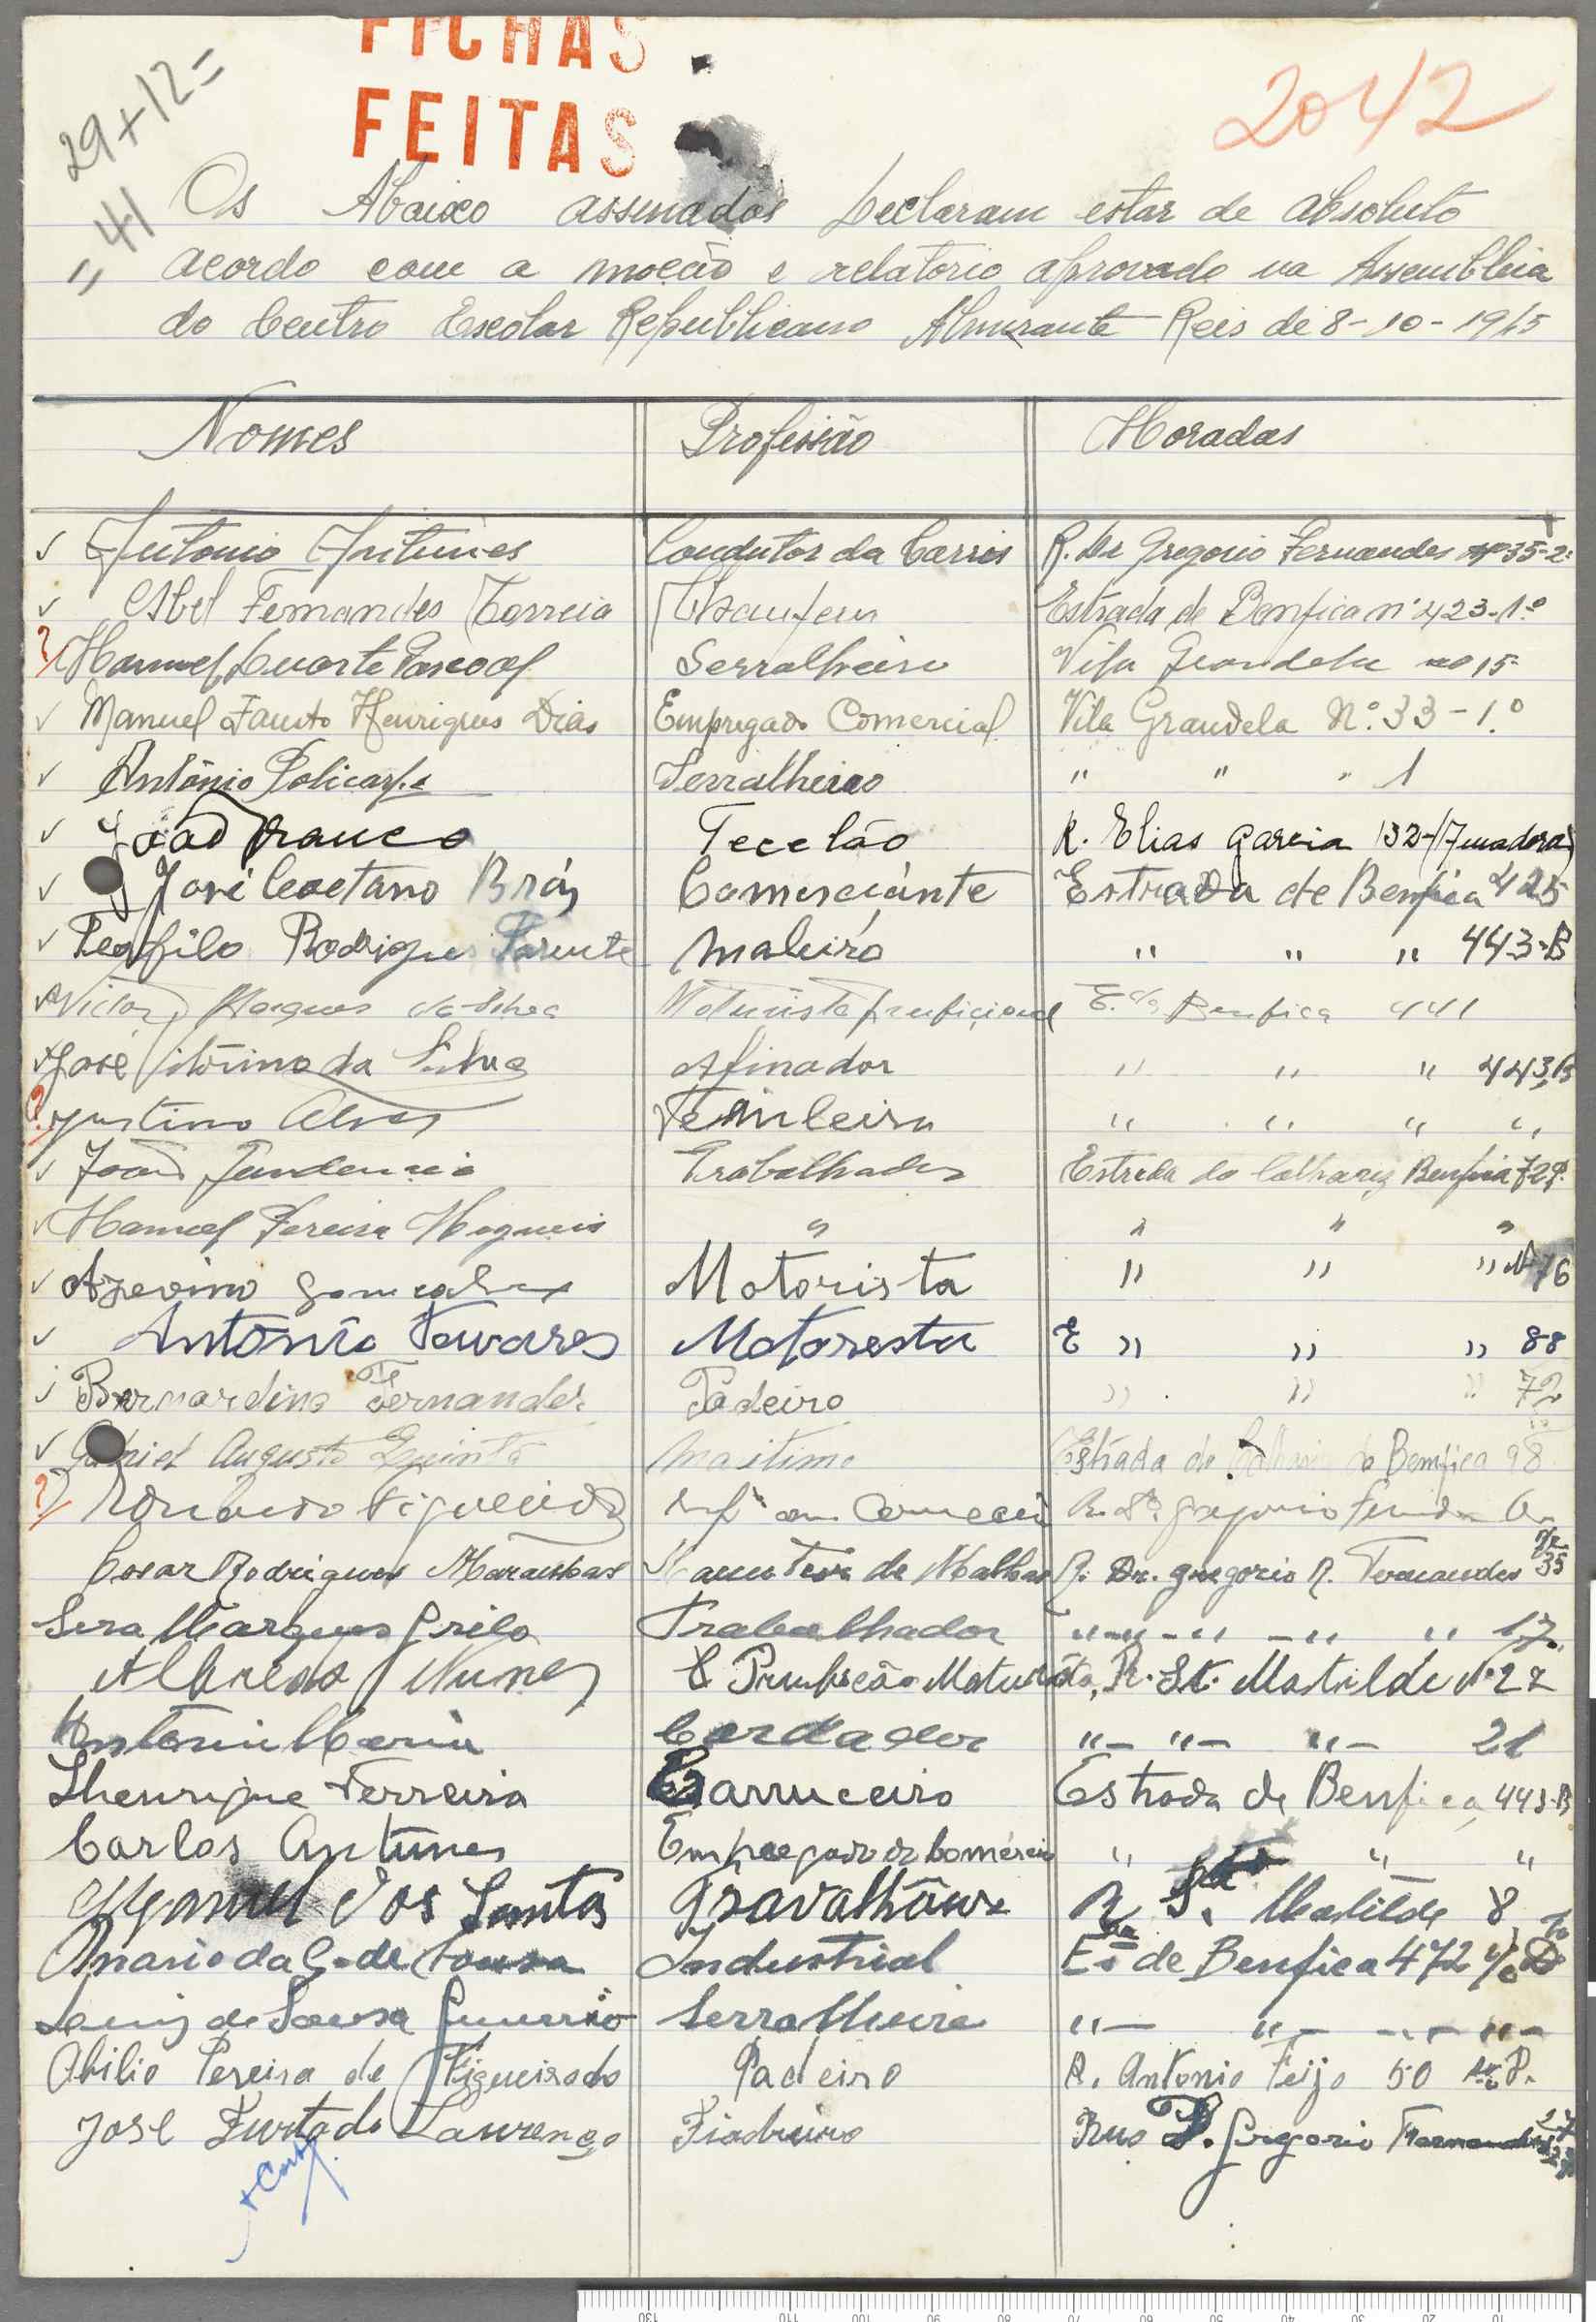 FICHAS
FEITAS
2042
29+12=
41
Os Abaixo assinados Declaram estar de absoluto
acordo com a moção e relatorio aprovado na Assembleia
do Centro Escolar Republicano Almirante Reis de 8-10-1945
Nomes Profissão Moradas
Antonio Antunes Condutor da Carris R. Dr Gregorio Fernandes nº 35-2º
Abel Fernandes Correia Chaufeur Estrada de Benfica nº 423-1.º
? Manuel Duarte Pascoal Serralheiro Vila Grandela nº 15
Manuel Fausto Henriques Dias Empregado Comercial Vila Grandela N.º 33-1.º
António Policarpo Serralheiro " " " 1
João Franco Tecelão R. Elias Garcia 132-(Amadora)
José Caetano Brás Comerciánte Estrada de Benfica 425
Teofilo Rodrigues Parente maleiro " " " 443-B
Victor Marques da Silva Motorista E. da Benfica 441
José Vitorino da Silva Afinador " " " 443,B
? Justino Alves " " " "
João Trabalhador Estrada do Calhariz Benfica 72
Manuel Pereira " " " "
Azevino Gonçalves Motorista " " " Nº 76
António Tavares Motoresta E " " " 88
Bernardino Fernandes Padeiro " " " 72
Gabriel Augusto Quinta maritimo Estrada do Calhariz de Benfica 98
? Figueiredo
Cesar Rodrigues de Malhas R. Dr. Gregorio R. Fernandes 35
Marques Grilo Trabalhador "-"-"-" " 17
Alfredo Nunes R. St. Matilde Nº 22
Antonio Maria Cardador "- "- "- 21
Lhenrique Ferreira Carruceiro Estrada de Benfica, 443-B
Carlos Antunes Empregado do Comércio " " "
Manuel dos Santos R. Sta. Matilde 8
Mario da G. de Sousa Industrial E.da de Benfica 472
Luiz de Sousa Serralheiro "- "- "-
Abilio Pereira de Figueiredo Padeiro R. Antonio Feijo 50
José Furtado Lourenço Rua D. Gregorio Fernandes